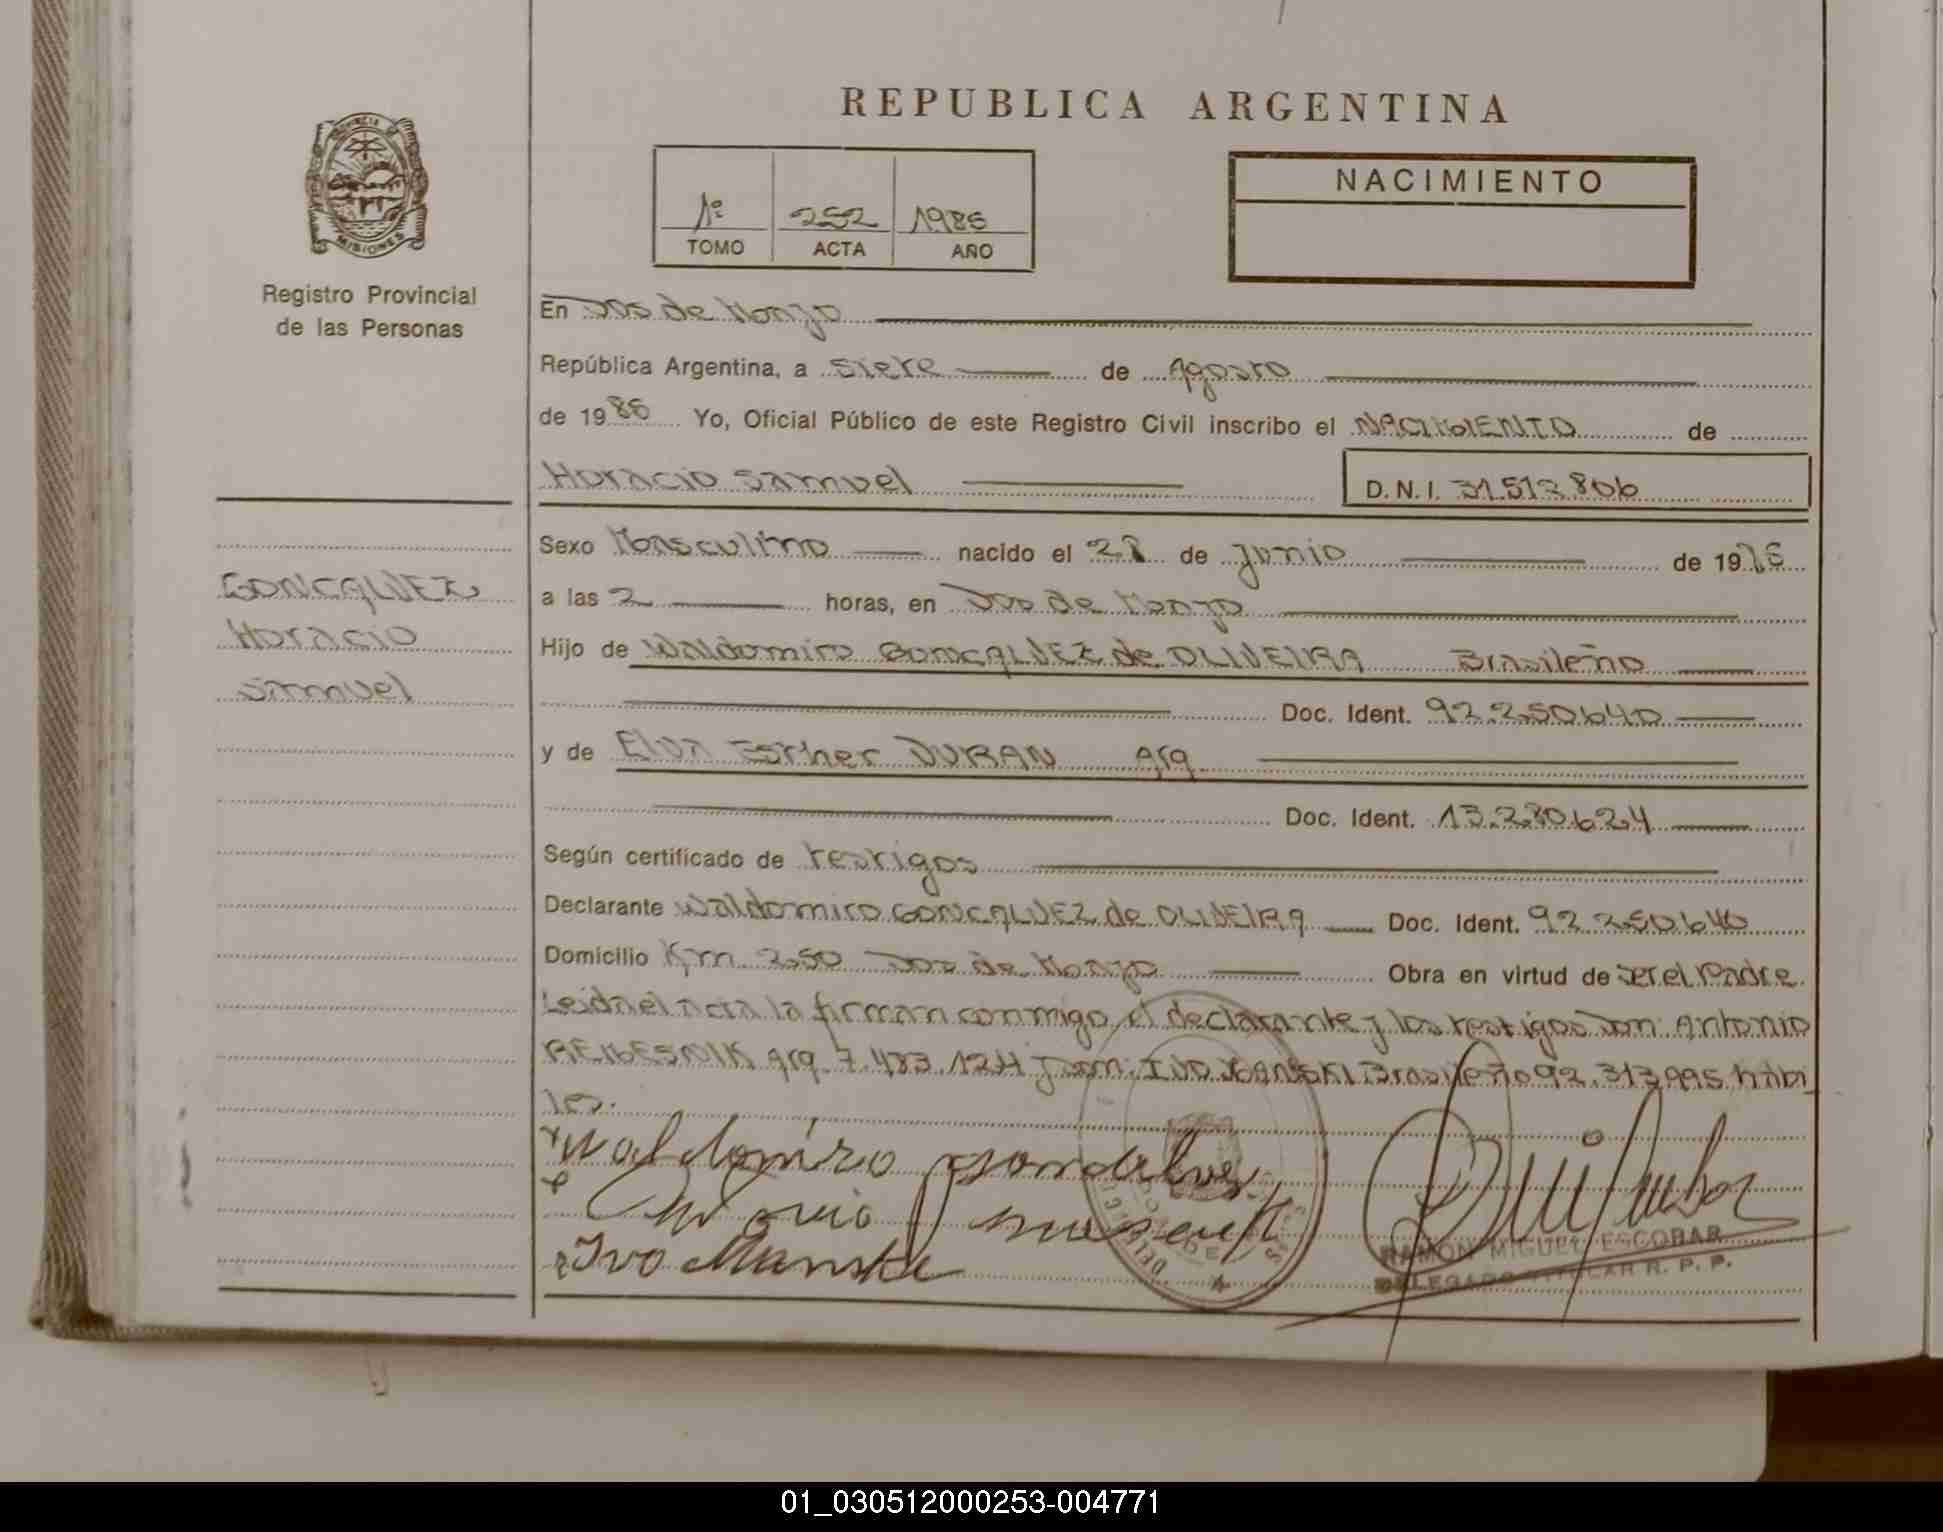 REPUBLICA ARGENTINA
PROVINCIA DE MISIONES
Registro Provincial
de las Personas
1º 252 1986
TOMO ACTA AÑO
NACIMIENTO
En Dos de Mayo
República Argentina, a siete de Agosto
de 1986 Yo, Oficial Público de este Registro Civil inscribo el NACIMIENTO de
Horacio Samuel D.N.I. 31.513.806
Sexo Masculino nacido el 28 de Junio de 19
GONCALVEZ
Horacio
Samuel
a las 2 horas, en Dos de Mayo
Hijo de Waldomiro GONCALVEZ de OLIVEIRA Brasileño
Doc. Ident. 92.250640
y de Elva Esther DURAN Arg
Doc. Ident. 13.280.624
Según certificado de testigos
Declarante Waldomiro GONCALVEZ de OLIVEIRA Doc. Ident. 92 250640
Domicilio Km 250 Dos de Mayo Obra en virtud de ser el Padre.
Leida el acta la firman conmigo, el declarante y los testigos Don: Antonio
Arg. 7.483.124 y Don: IVO Brasileño 92.313.995 habi
les.
Waldomiro
Antonio
Ivo
RAMON MIGUEL ESCOBAR
DELEGADO TITULAR R. P. P.
01_030512000253-004771